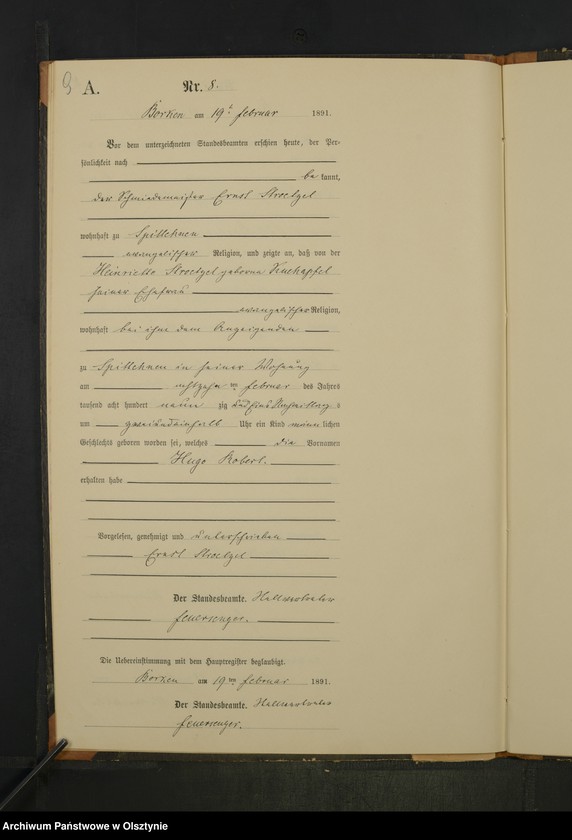 9
A.
Nr. 8.
Borken am 19t Februar 1891.
Vor dem unterzeichneten Standesbeamten erschien heute, der Per-
sönlichkeit nach
be kannt,
der Schmiedemeister Ernst Stroetzel
wohnhaft zu Spittehnen
evangelischer Religion, und zeigte an, daß von der
Heinriette Stroetzel geborne
seiner Ehefrau
evangelischer Religion,
wohnhaft bei ihm dem Anzeigenden
zu Spittehnen in seiner Wohnung
am achtzehn ten Februar des Jahres
tausend acht hundert neun zig und eins Nachmittag s
um zweiundeinhalb Uhr ein Kind männ lichen
Geschlechts geboren worden sei, welches die Vornamen
Hugo Robert.
erhalten habe
Vorgelesen, genehmigt und unterschrieben
Ernst Stroetzel
Der Standesbeamte. Stellvertreter
Feuersenger.
Die Uebereinstimmung mit dem Hauptregister beglaubigt.
Borken am 19ten Februar 1891.
Der Standesbeamte. Stellvertreter
Feuersenger.
Archiwum Państwowe w Olsztynie